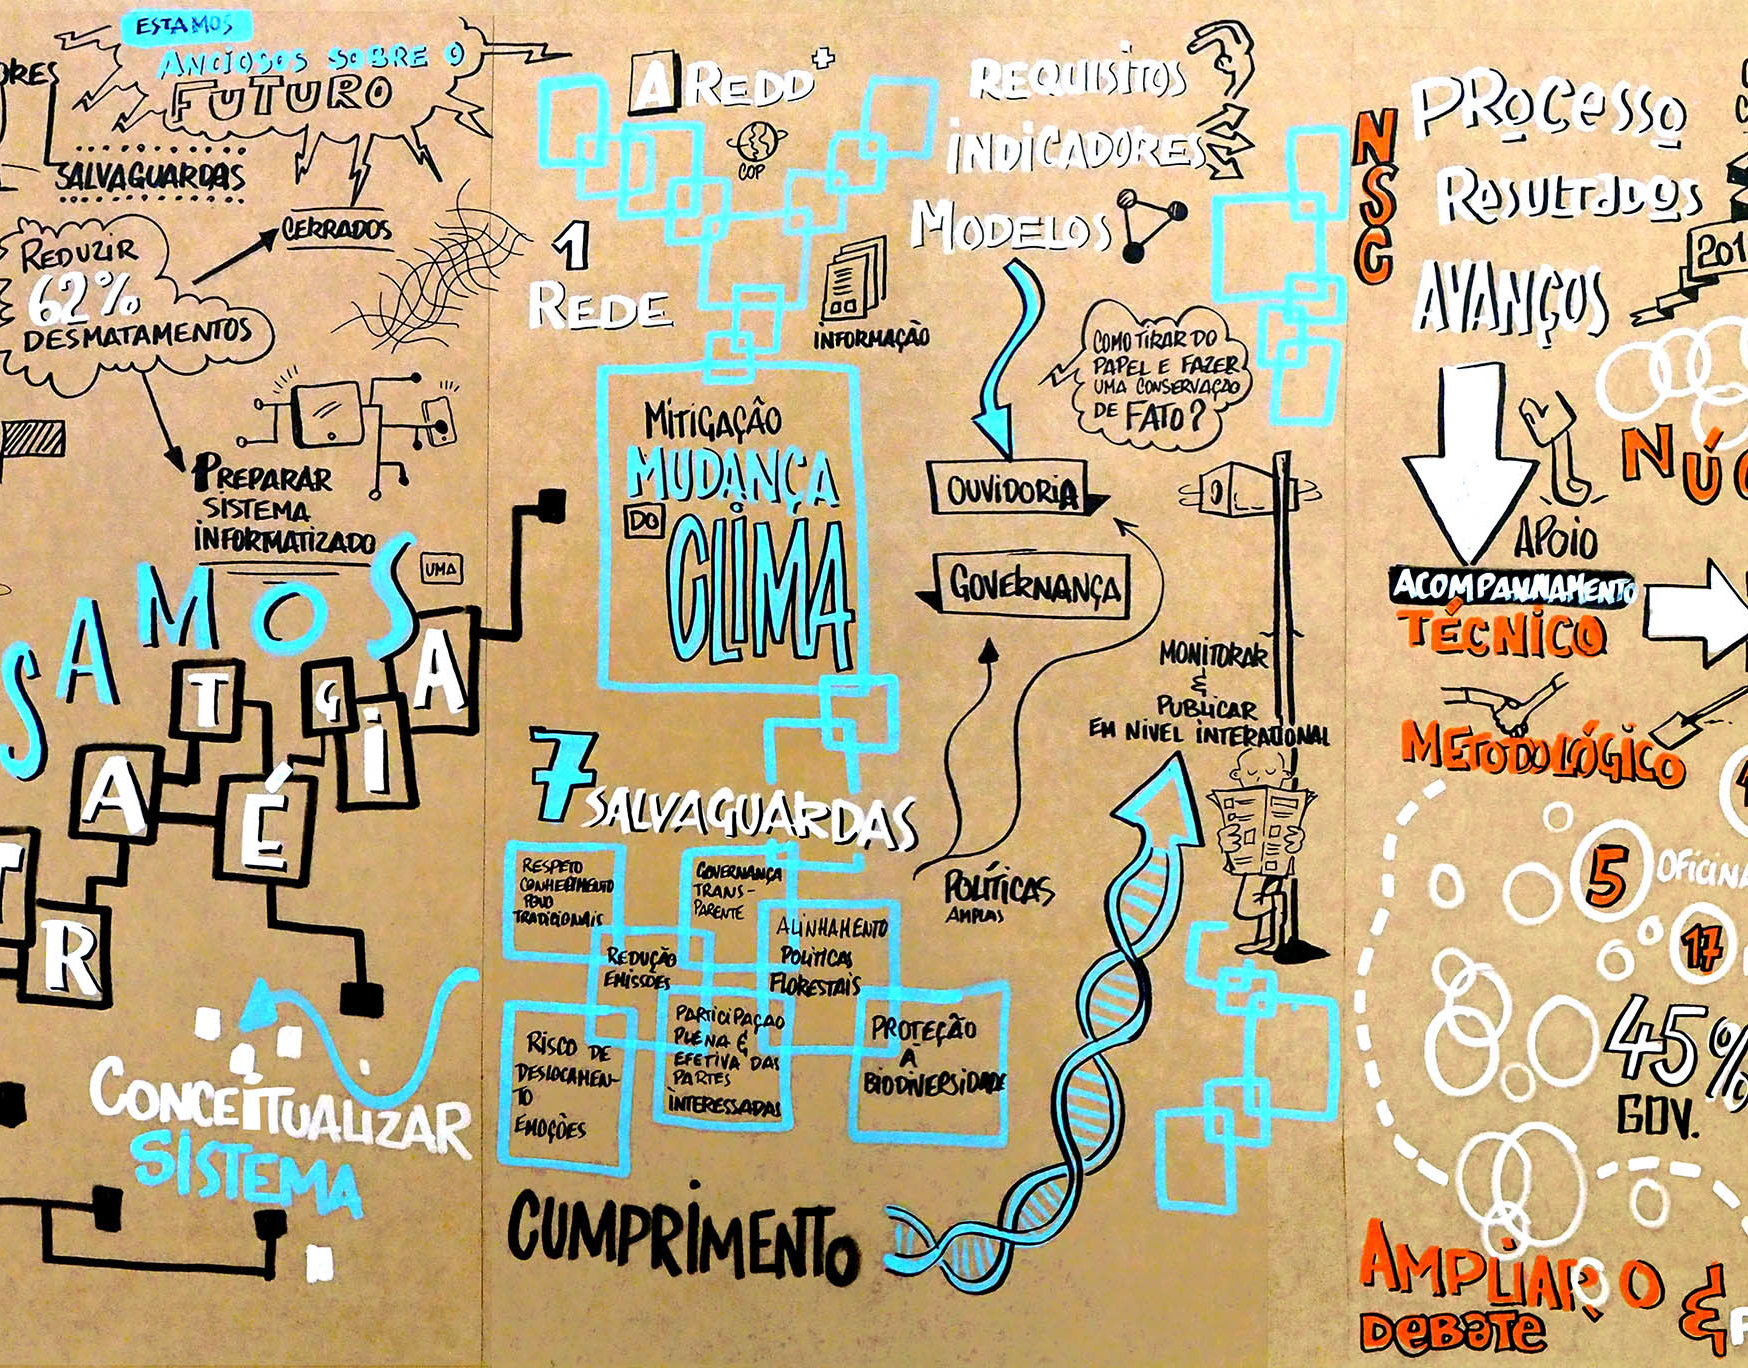 ESTAMOS
ANCIOSOS SOBRE O
FUTURO
SALVAGUARDAS
CERRADOS
REDUZIR
62%
DESMATAMENTOS
PREPARAR
SISTEMA
INFORMATIZADO
SAMOS
UMA
TRATÉGIA
CONCEITUALIZAR
SISTEMA
A REDD+
COP
1
REDE
INFORMAÇÃO
MITIGAÇÃO
MUDANÇA
DO
CLIMA
7
SALVAGUARDAS
RESPETO
CONHECIMENTO
POVO
TRADICIONAIS
GOVERNANÇA
TRANS-
PARENTE
REDUÇÃO
EMISSÕES
ALINHAMENTO
POLÍTICAS
FLORESTAIS
RISCO DE
DESLOCAMEN-
TO
EMOÇÕES
PARTICIPAÇAO
PLENA E
EFETIVA DAS
PARTES
INTERESSADAS
PROTEÇÃO
À
BIODIVERSIDADE
CUMPRIMENTO
REQUISITOS
INDICADORES
MODELOS
COMO TIRAR DO
PAPEL E FAZER
UMA CONSERVAÇÃO
DE FATO?
OUVIDORIA
GOVERNANÇA
POLÍTICAS
AMPLAS
MONITORAR
&
PUBLICAR
EM NÍVEL INTERATIONAL
NSC
PROCESSO
RESULTADOS
201
AVANÇOS
NÚC
APOIO
ACOMPANHAMENTO
TÉCNICO
METODOLÓGICO
5 OFICINA
17
45%
GOV.
AMPLIAR O
DEBATE
&